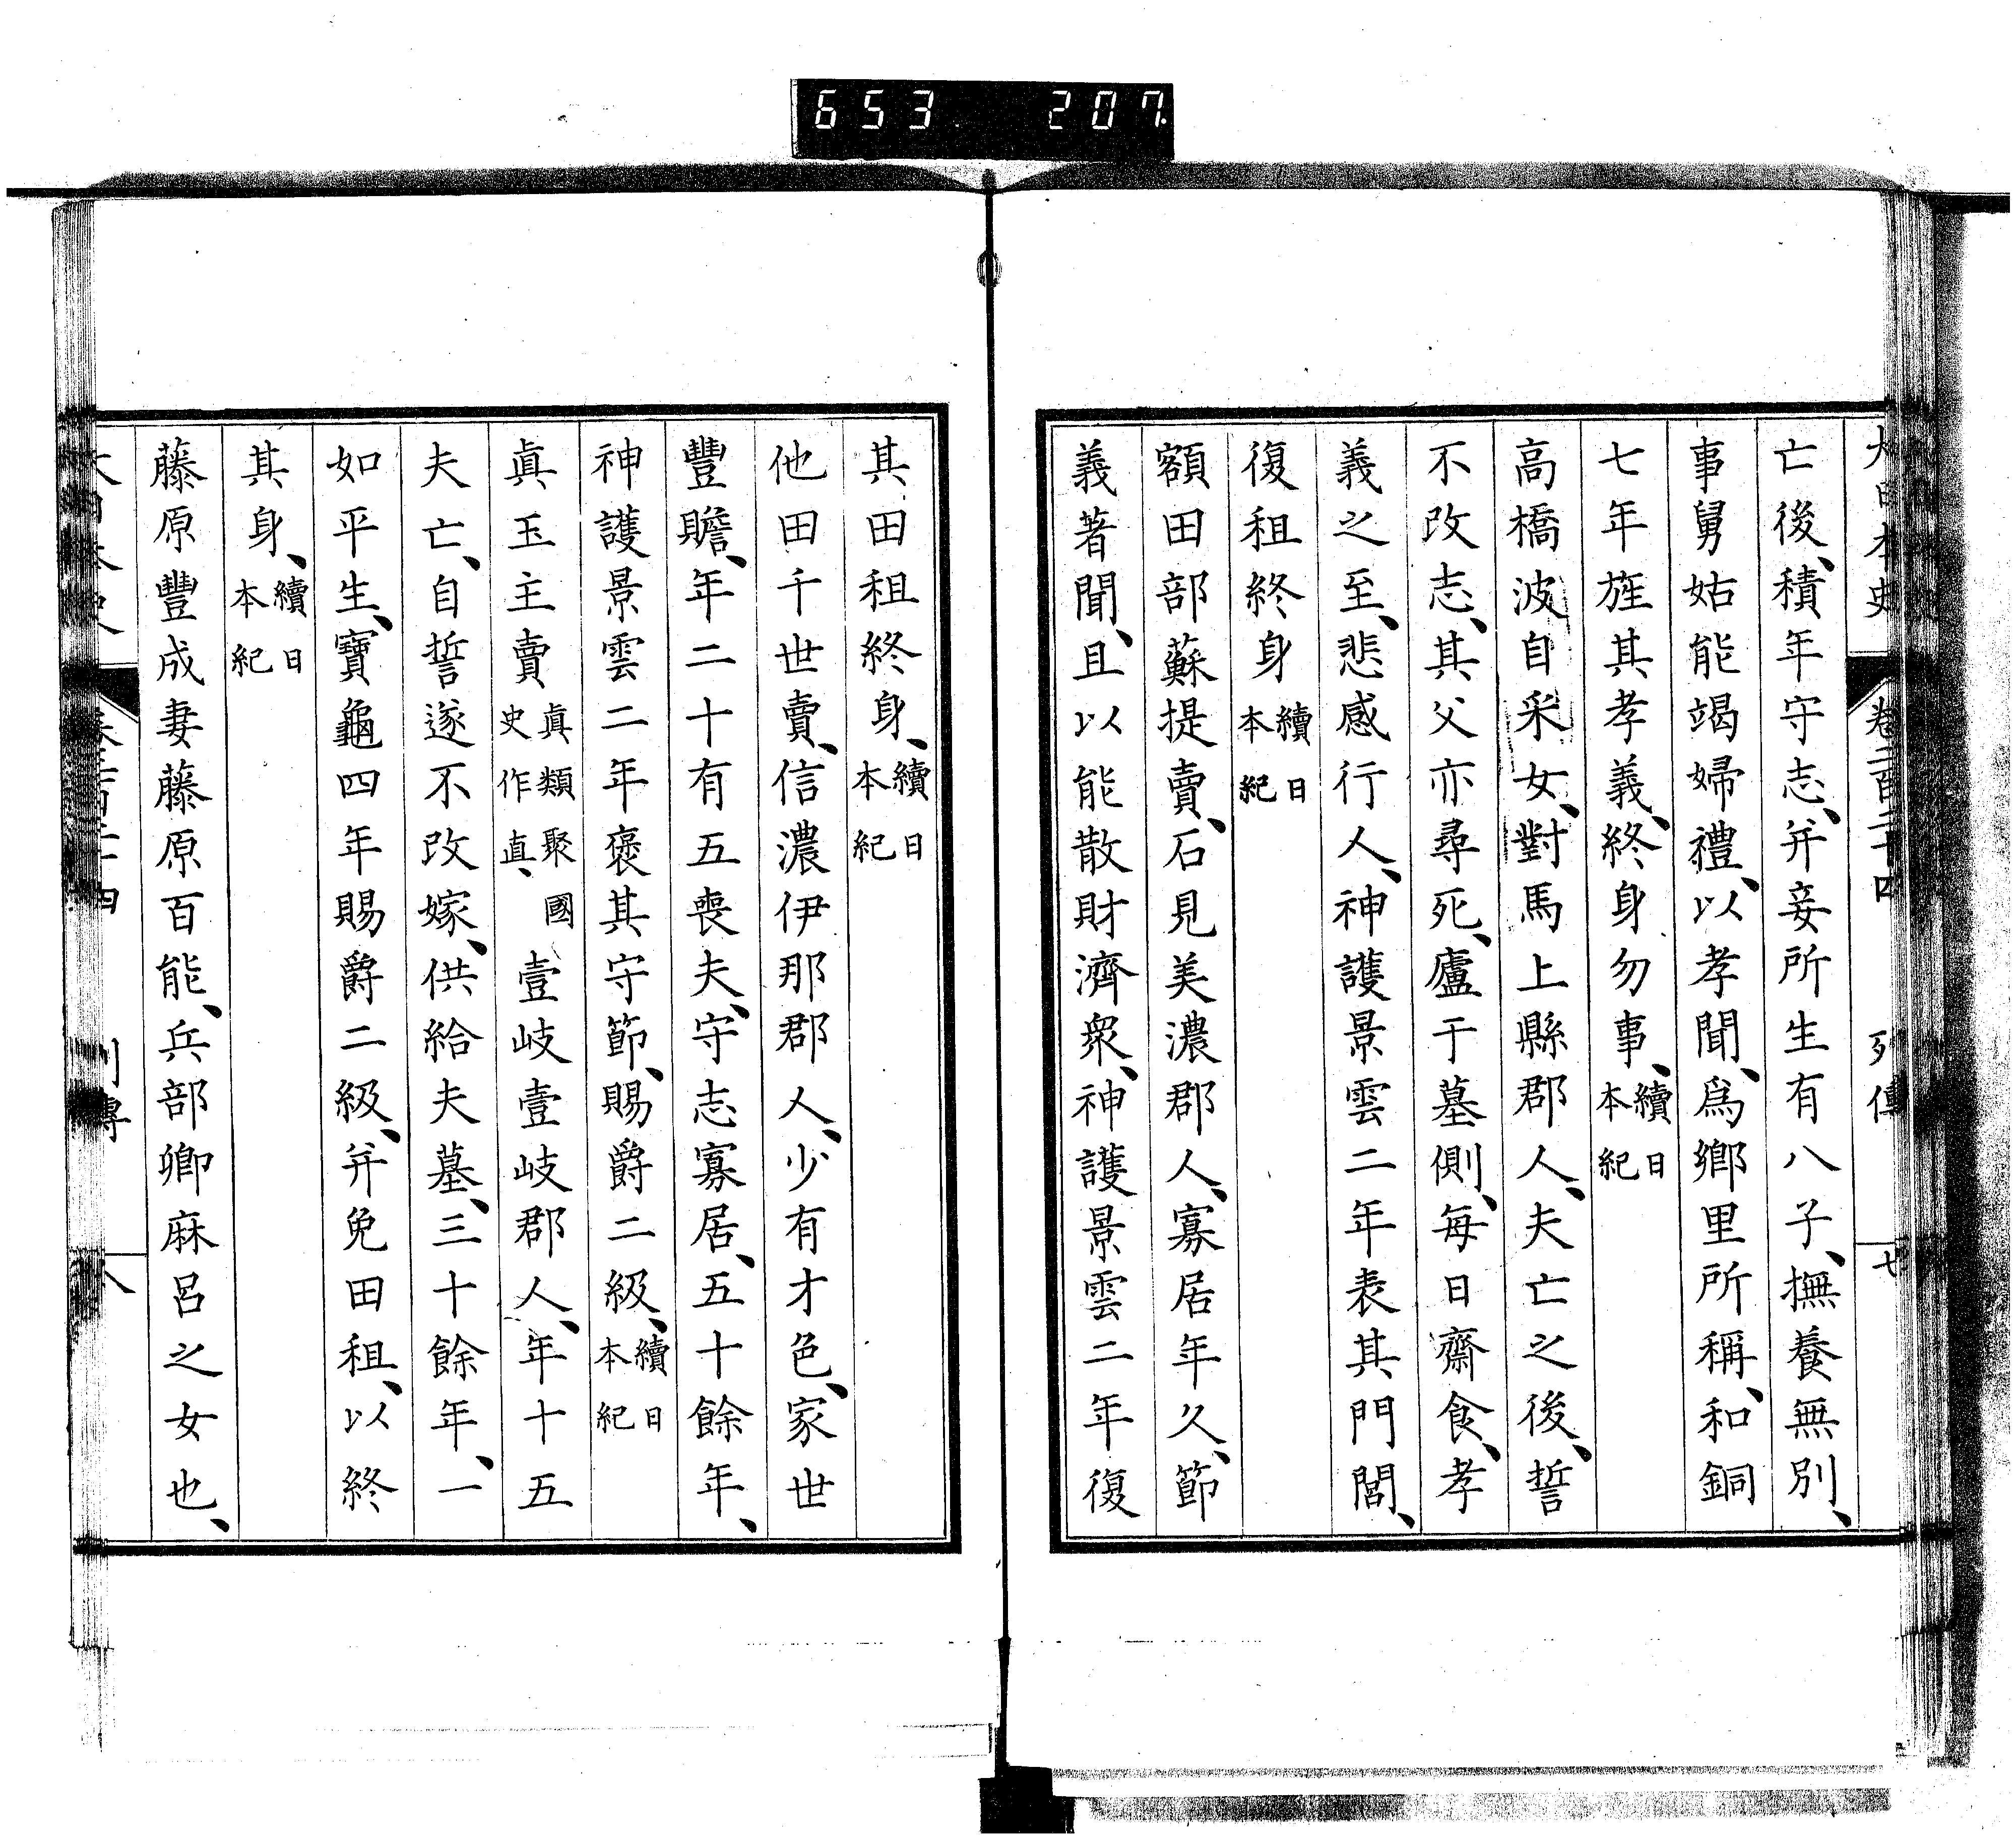 653 207
大日本史 卷二百二十四 列傳 七
亡後、積年守志、并妾所生有八子、撫養無別、
事舅姑能竭婦禮、以孝聞、爲鄉里所稱、和銅
七年旌其孝義、終身勿事、續日本紀
高橋波自采女、對馬上縣郡人、夫亡之後、誓
不改志、其父亦尋死、廬于墓側、每日齋食、孝
義之至、悲感行人、神護景雲二年表其門閭、
復租終身續日本紀
額田部蘇提賣、石見美濃郡人、寡居年久、節
義著聞、且以能散財濟衆、神護景雲二年復
其田租終身、續日本紀
他田千世賣、信濃伊那郡人、少有才色、家世
豐贍、年二十有五喪夫、守志寡居、五十餘年、
神護景雲二年褒其守節、賜爵二級、續日本紀
眞玉主賣眞類聚國史作直、壹岐壹岐郡人、年十五
夫亡、自誓遂不改嫁、供給夫墓、三十餘年、一
如平生、寶龜四年賜爵二級、并免田租、以終
其身、續日本紀
藤原豐成妻藤原百能、兵部卿麻呂之女也、
大日本史 卷二百二十四 列傳 八